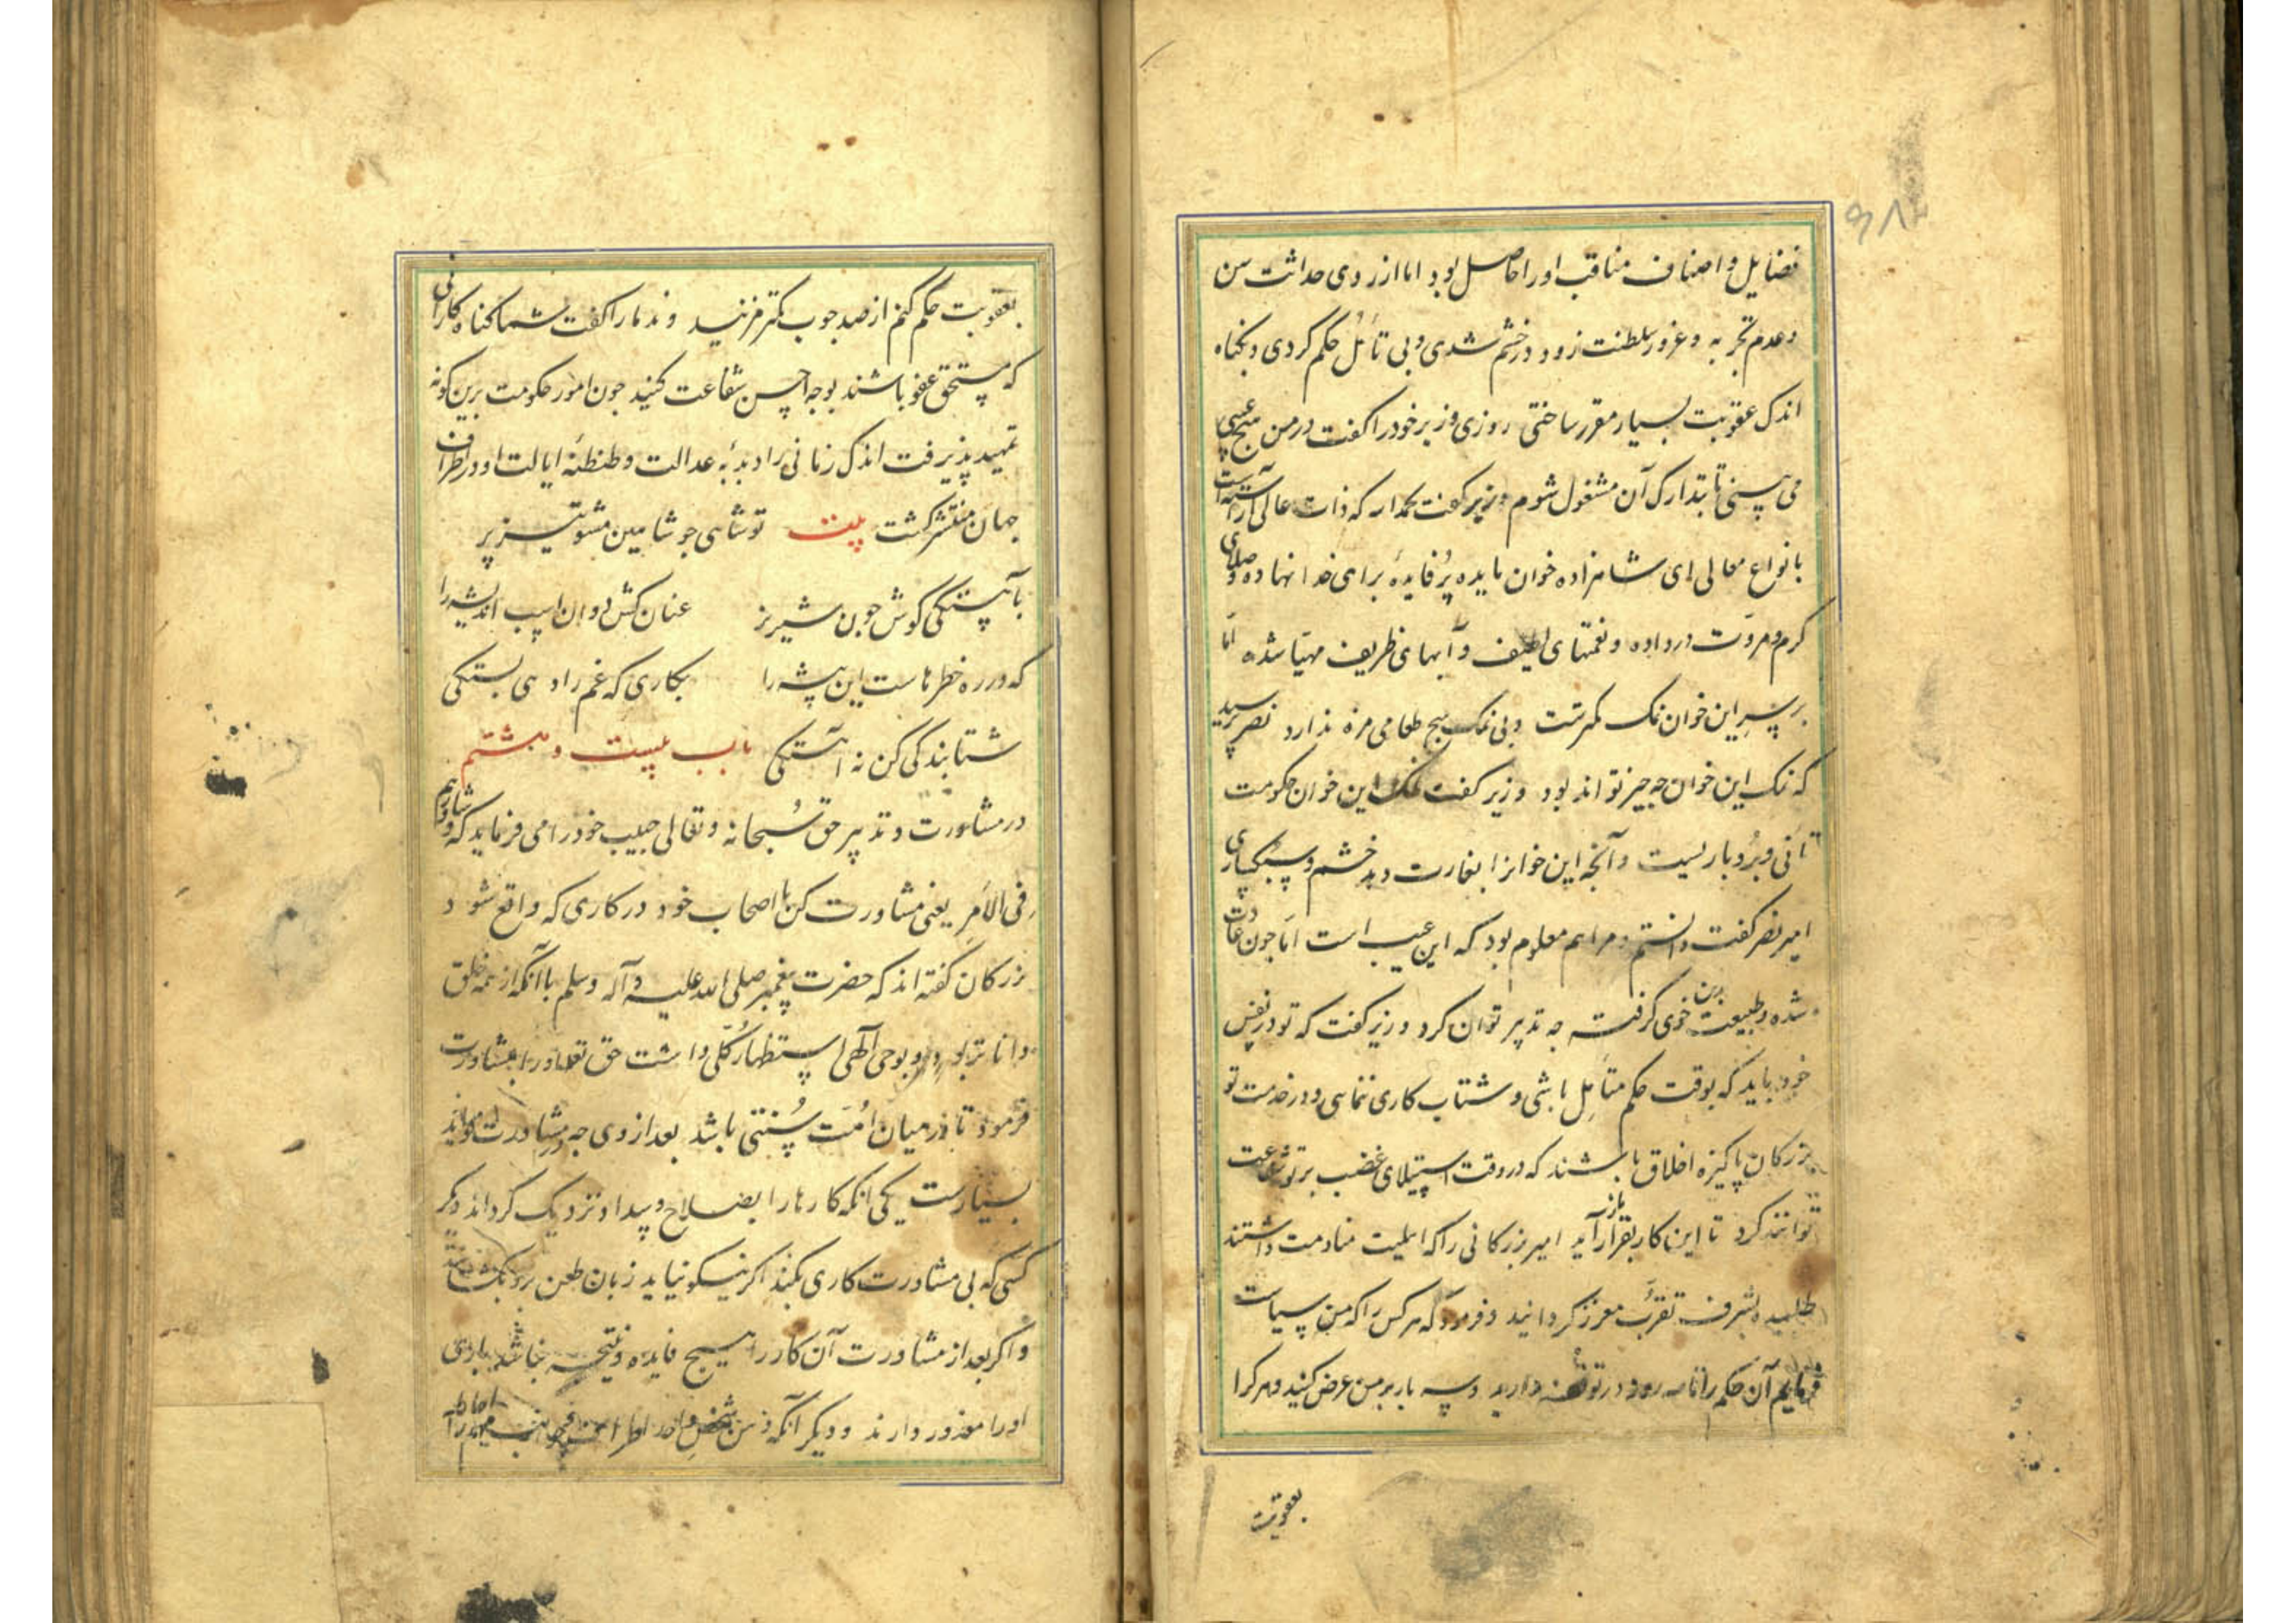 فضایل و اصناف مناقب او را حاصل بود اما از روی حداثت سن
و عدم تجربه و غرور سلطنت زود در خشم شدی و بی تأمل حکم کردی و بگناه
اندک عقوبت بسیار مقرر ساختی روزی وزیر خود را کفت در من هیچ عیبی
می بینی تا بتدارک آن مشغول شوم وزیر کفت بحمد الله که ذات عالی آراسته است
بانواع معالی ای شاهزاده خوان مایده پُر فایدهٔ برای خدا نهاده و صلای
کرم و مروّت در داده و نعمتهای لطیف و آبهای ظریف مهیّا شده امّا
بر سرِ این خوان نمک کمرتست و بی نمک هیچ طعامی مزه ندارد نصر پرسید
که نمک این خوان چه چیز تواند بود وزیر کفت نمک این خوان حکومت
تأنی و بُردباریست و آنچه این خوانرا بغارت دهد خشم و سبکساری
امیر نصر کفت دانستم و مرا هم معلوم بود که این عیب است امّا چون عادت
شده و طبیعت برین خوی کرفته چه تدبیر توان کرد وزیر کفت که تو در نفس
خود باید که بوقت حکم متأمل باشی و شتاب کاری ننمایی و در خدمت تو
بزرکان پاکیزه اخلاق باشند که در وقت استیلای غضب بر تو شفاعت
توانند کرد تا این کار بقرار باز آید امیر بزرکانی را که اهلیت منادمت داشتند
طلبیده بشرف تقرّب معزز کردانید و فرمود که هر کس را که من سیاست
فرمایم آن حکم را تا سه روز در توقف دارید و سه بار بر من عرض کنید و هر کرا
بعقوبت
بعقوبت حکم کنم از صد چوب کمتر مزنید و ندما را کفت شما کناه کارانی
که مستحق عفو باشند بوجه احسن شفاعت کنید چون امور حکومت برین کونه
تمهید پذیرفت اندک زمانی را دبدبهٔ عدالت و طنطنهٔ ایالت او در اطراف
جهان منتشر کشت بیت تو شاهی چو شاهین مشو تیز پر
بآهستکی کوش چون شیر نر عنان کش دوان اسب اندیشه را
که در ره خطرهاست این پیشه را بکاری که غم را دهی بستکی
شتابندکی کن نه آهستکی باب بیست و هشتم
در مشاورت و تدبیر حق سُبحانه و تعالی حبیب خود را می فرماید که و شاورهم
فی الاَمرِ یعنی مشاورت کن با اصحاب خود در کاری که واقع شود
بزرکان کفته اند که حضرت پیغمبر صلی الله علیه و آله وسلم با آنکه از همه خلق
داناتر بود و بوحی الهی استظهار کُلی داشت حق تعالی او را بمشاورت
فرمود تا در میان اُمّت سُنتی باشد بعد از وی چه در مشاورت فواید
بسیارست یکی آنکه کارها را بصلاح و پیدا و نزدیک کرداند دیکر
کسی که بی مشاورت کاری بکند اکر نیکو نیاید زبان طعن برو بکشایند
و اکر بعد از مشاورت آن کار را هیچ فایده و نتیجه نباشد باری
او را معذور دارند و دیکر آنکه ذهن شخص واحد اطراف و جوانب مهم را احاطه